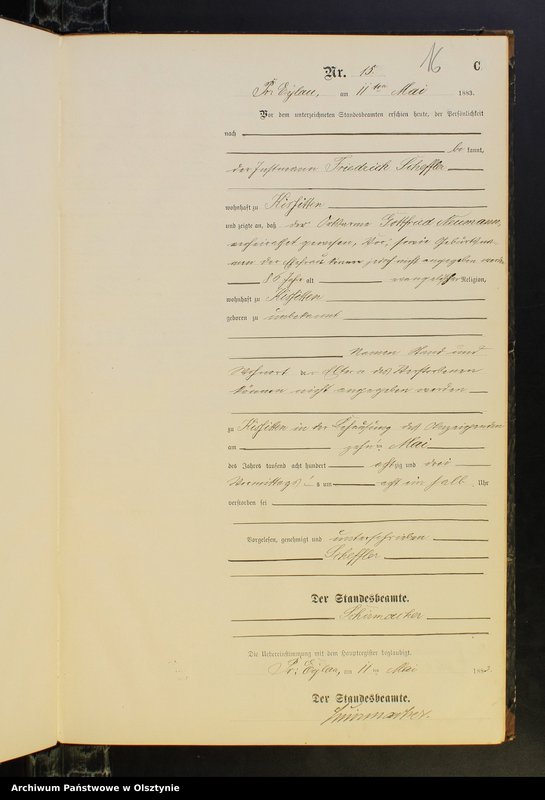 16
C
Nr. 15
Pr. Eylau, am 11ten Mai 1883.
Vor dem unterzeichneten Standesbeamten erschien heute, der Persönlichkeit
nach
be kannt,
der Instmann Friedrich Scheffler
wohnhaft zu
und zeigte an, daß der Ortsarme Gottfried Neumann,
verheirathet gewesen, Vor, sowie Geburtsna-
men der Ehefrau können jedoch nicht angegeben werden
86 Jahr alt evangelischer Religion,
wohnhaft zu
geboren zu unbekannt
Namen Stand und
Wohnort der Eltern des Verstorbenen
können nicht angegeben werden
zu in der Behausung des Anzeigenden
am zehnten Mai
des Jahres tausend acht hundert achtzig und drei
Vormittags um acht ein halb Uhr
verstorben sei
Vorgelesen, genehmigt und unterschrieben
Scheffler
Der Standesbeamte.
Schirmacher
Die Uebereinstimmung mit dem Hauptregister beglaubigt.
Pr. Eylau, am 11ten Mai 188
Der Standesbeamte.
Schirmacher.
Archiwum Państwowe w Olsztynie